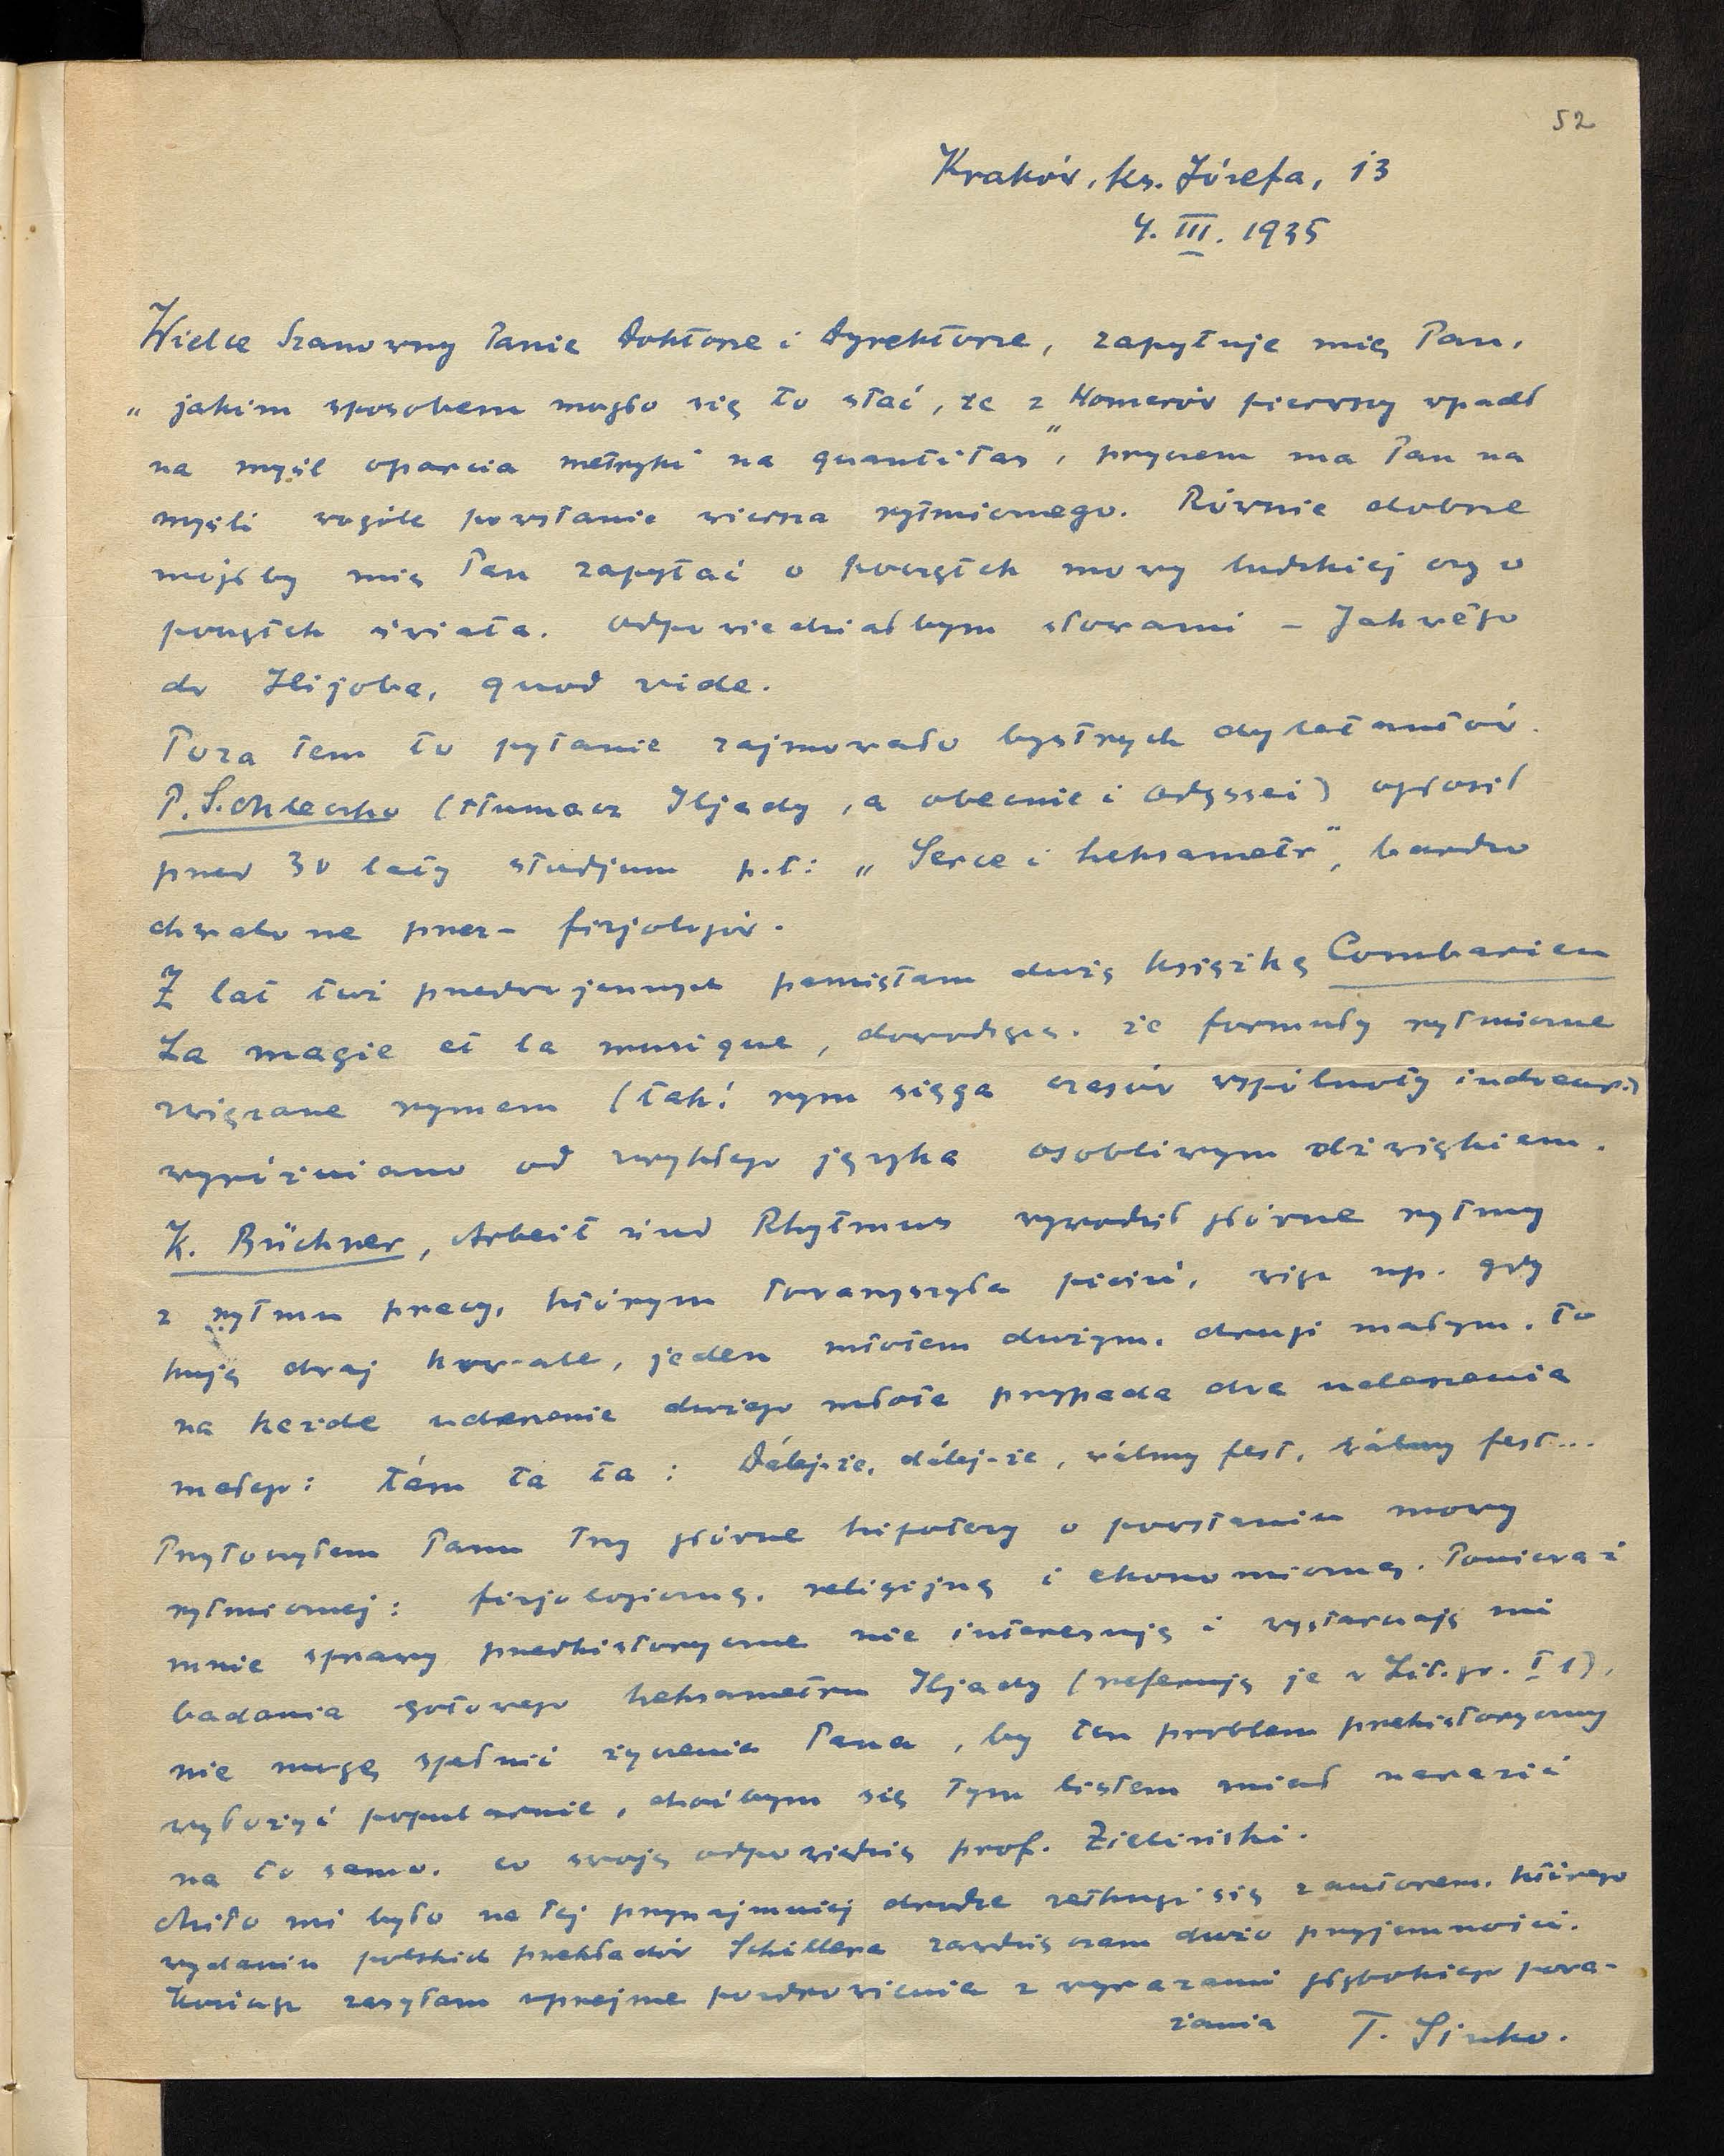 52
Kraków, ks. Józefa, 13
4. III. 1935
Wielce Szanowny Panie Doktorze i Dyrektorze, zapytuje mię Pan,
„jakim sposobem mogło się to stać, że z Homerów pierwszy wpadł
na myśl oparcia metryki na quantitas", przyczem ma Pan na
myśli wogóle powstanie wiersza rytmicznego. Równie dobrze
mógłby mię Pan zapytać o początek mowy ludzkiej czy o
początek świata. Odpowiedziałbym słowami – Jahwego
do Hijoba, quod vide.
Poza tem to pytanie zajmowało bystrych dyletantów.
P. S. Mleczko (tłumacz Iljady, a obecnie i Odyssei) ogłosił
przed 30 laty studjum p.t: „Serce i heksametr", bardzo
chwalone przez – fizjologów.
Z lat tuż przedwojennych pamiętam dużą książkę Combarieu
La magie et la musique, dowodzącą, że formuły rytmiczne
związane rymem (tak! rym sięga czasów wspólnoty indoeurp.)
wyróżniano od zwykłego języka osobliwym dźwiękiem.
K. Büchner, Arbeit und Rhytmus wywodził główne rytmy
z rytmu pracy, którym towarzyszyła pieśń, więc np. gdy
kują dwaj kowale, jeden młotem dużym, drugi małym, to
na każde uderzenie dużego młota przypada dwa uderzenia
małego: tám ta ta: Dálej-że, dálej-że, wálmy fest, wálmy fest...
Przytoczyłem Panu trzy główne hipotezy o powstaniu mowy
rytmicznej: fizjologiczną, religijną i ekonomiczną. Ponieważ
mnie sprawy przedhistoryczne nie interesują i wystarczają mi
badania gotowego heksametru Iljady (referuję je w Lit. gr. I 1),
nie mogę spełnić życzenia Pana, by ten problem prehistoryczny
wyłożyć popularnie, choćbym się tym listem miał narazić
na to samo, co swoją odpowiedzią prof. Zieliński.
Miło mi było na tej przynajmniej drodze zetknąć się z autorem, którego
wydaniu polskich przekładów Schillera zawdzięczam dużo przyjemności.
Kończąc zasyłam uprzejme pozdrowienia z wyrazami głębokiego powa-
żania T. Sinko.